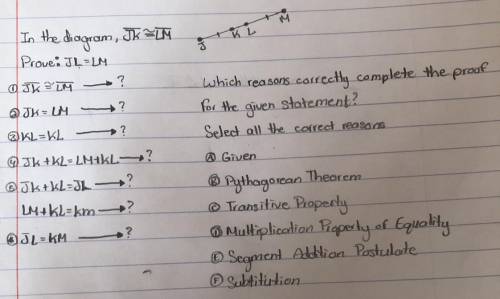 In the diagram, JK ≅ LM
J K L M
Prove: JL = LM
① JK ≅ LM → ?
② JK = LM → ?
③ KL = KL → ?
④ JK + KL = LM + KL → ?
⑤ JK + KL = JL → ?
LM + KL = km → ?
⑥ JL = KM → ?
Which reasons correctly complete the proof
for the given statement?
Select all the correct reasons
Ⓐ Given
Ⓑ Pythagorean Theorem
Ⓒ Transitive Property
Ⓓ Multiplication Property of Equality
Ⓔ Segment Addition Postulate
Ⓕ Subtitution